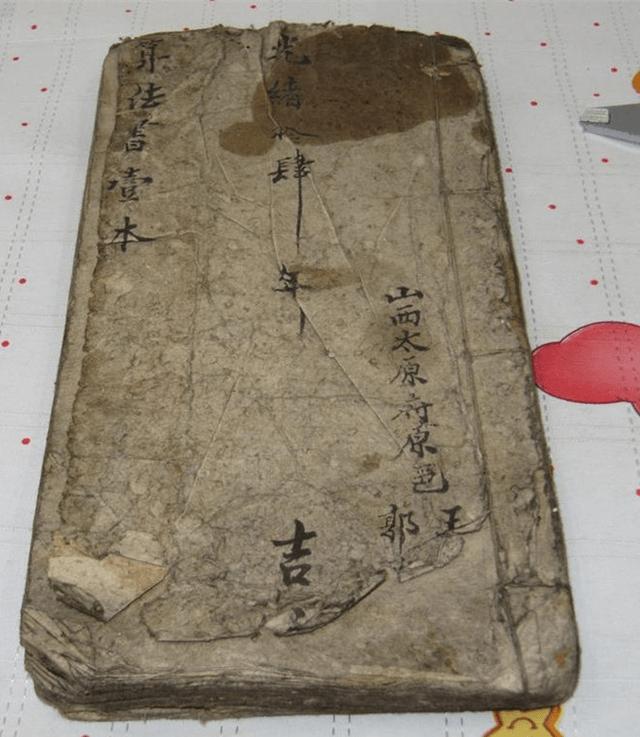 山西太原府原邑
王
郭
光緒拾肆年
吉
算法書壹本